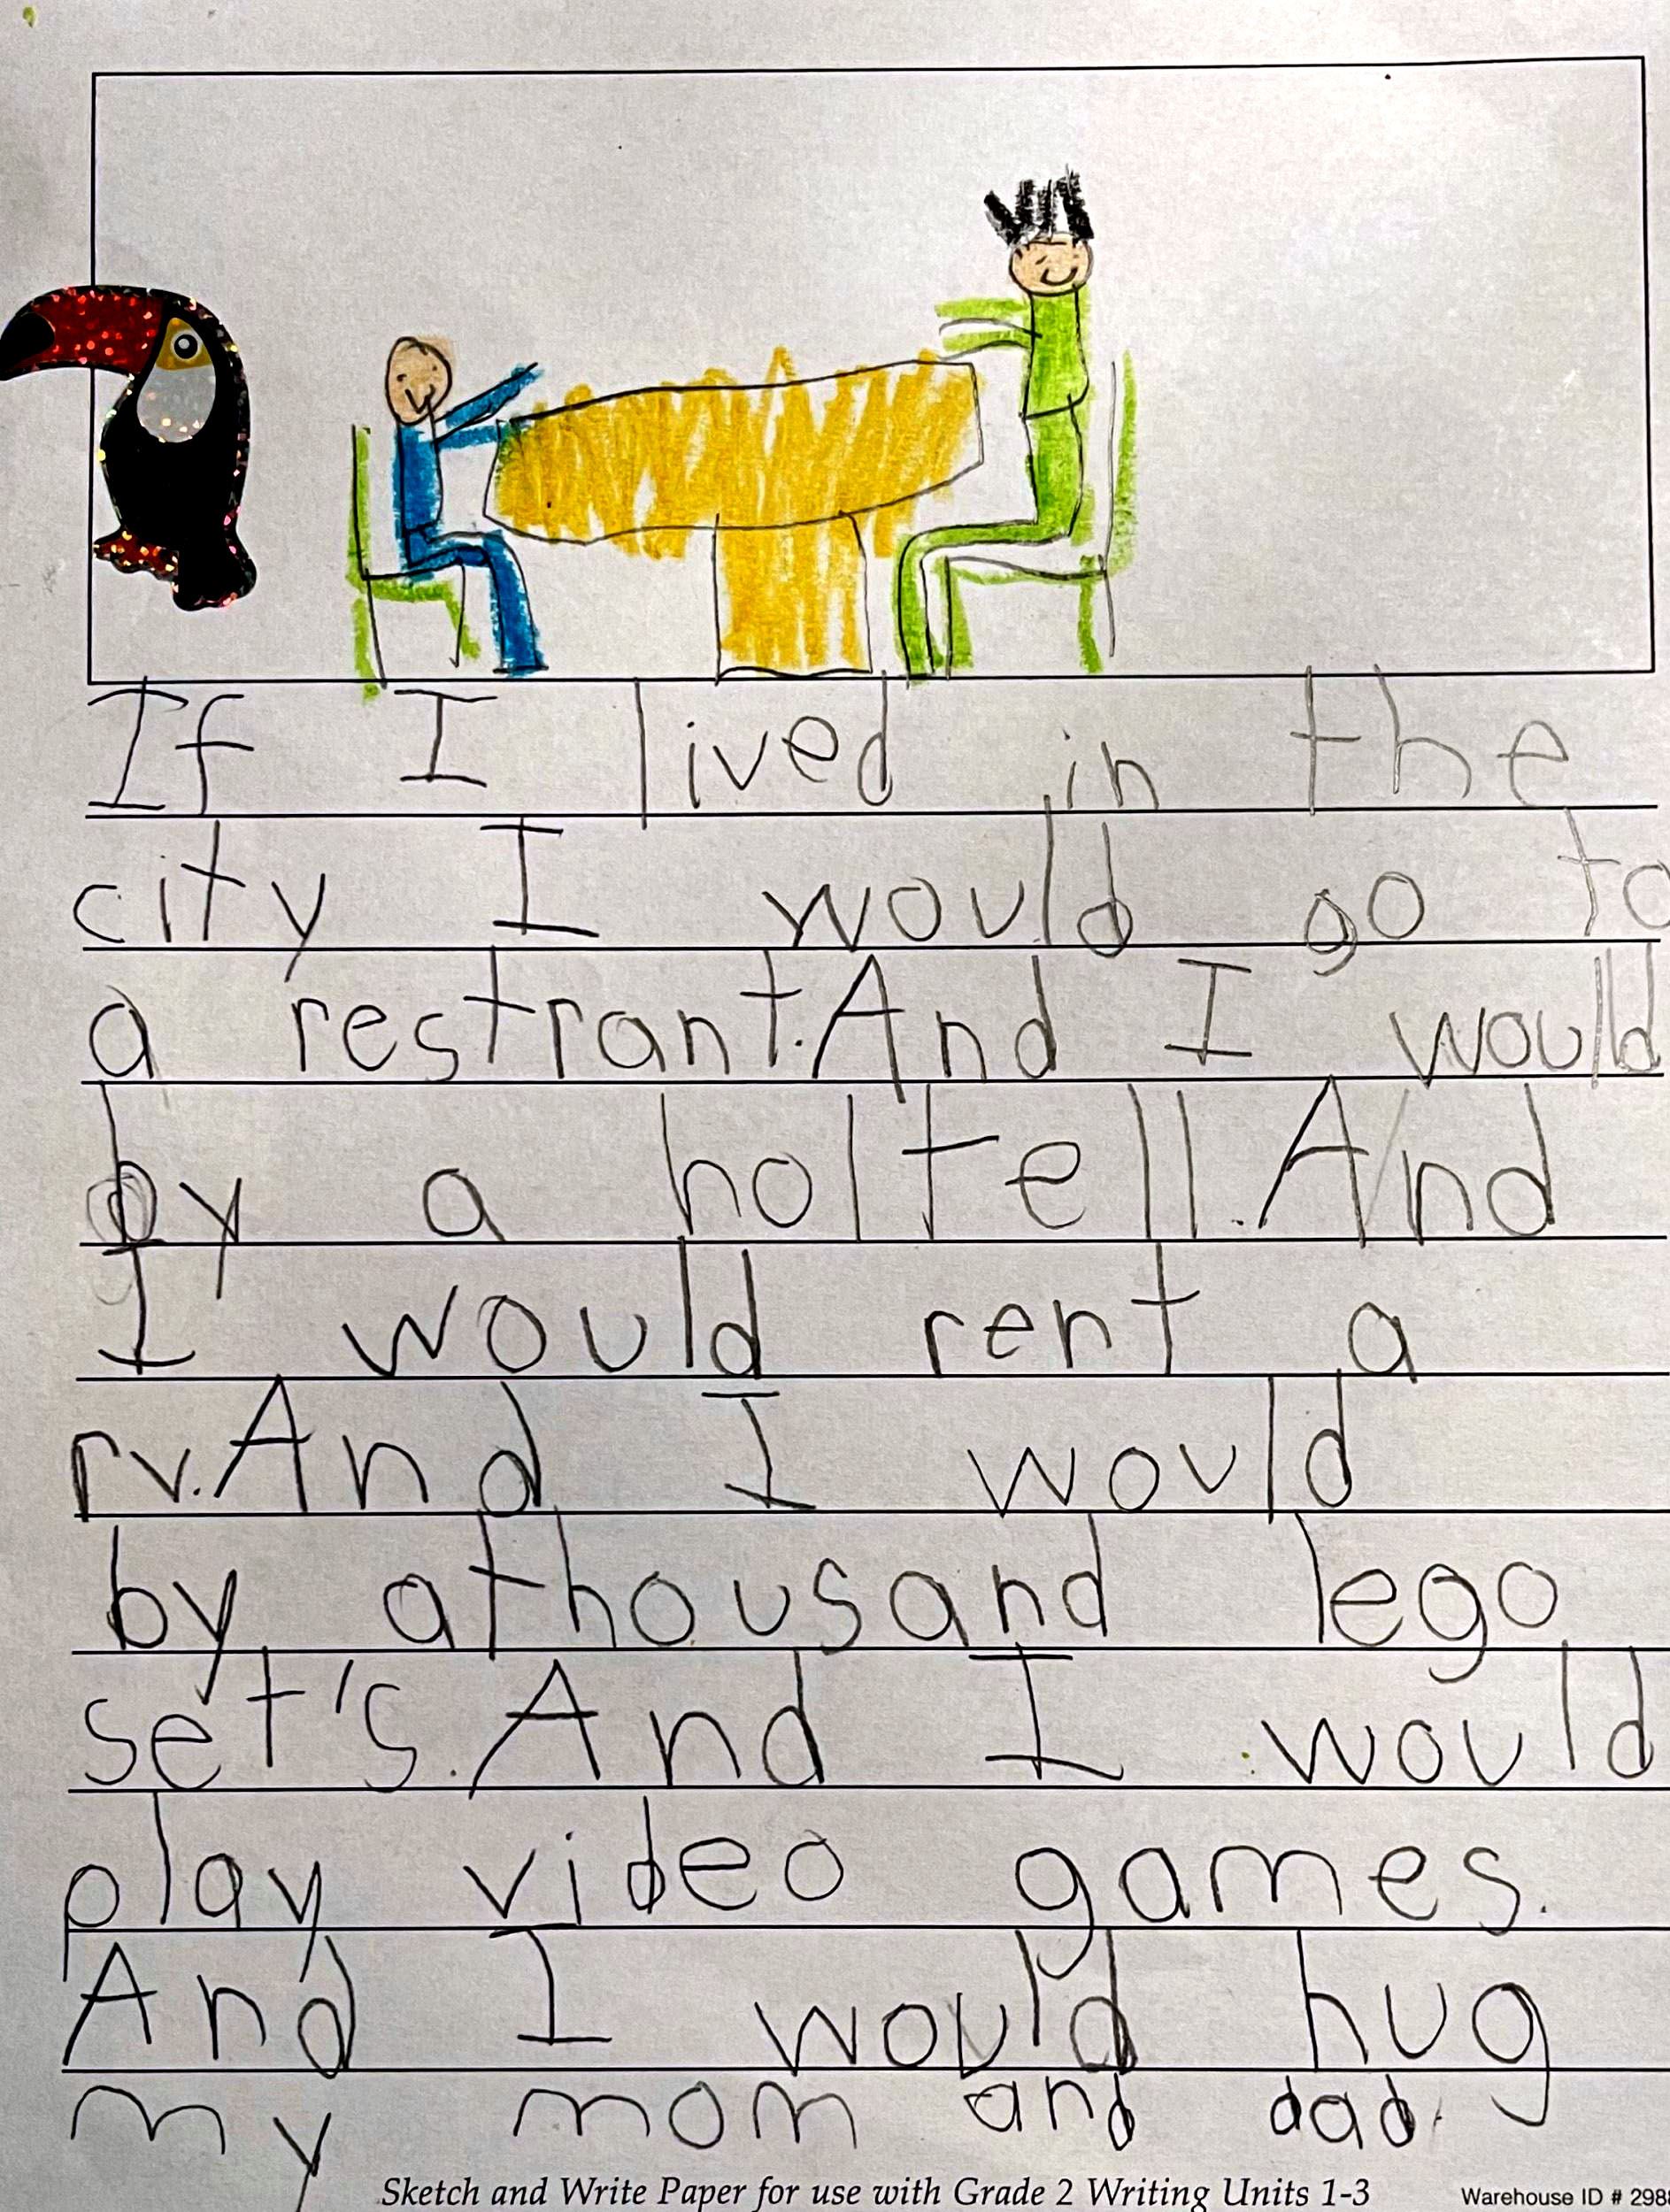 If I lived in the
city I would go to
a restrant. And I would
by a holtell. And
I would rent a
rv. And I would
by athousand lego
set's. And I would
play video games.
And I would hug
my mom and dad.
Sketch and Write Paper for use with Grade 2 Writing Units 1-3
Warehouse ID # 298